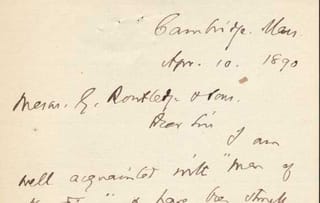 Cambridge. Mass
Apr. 10. 1890
Messrs. G. Routledge & Sons.
Dear Sirs
I am
well acquainted with "Men of
" & have been struck